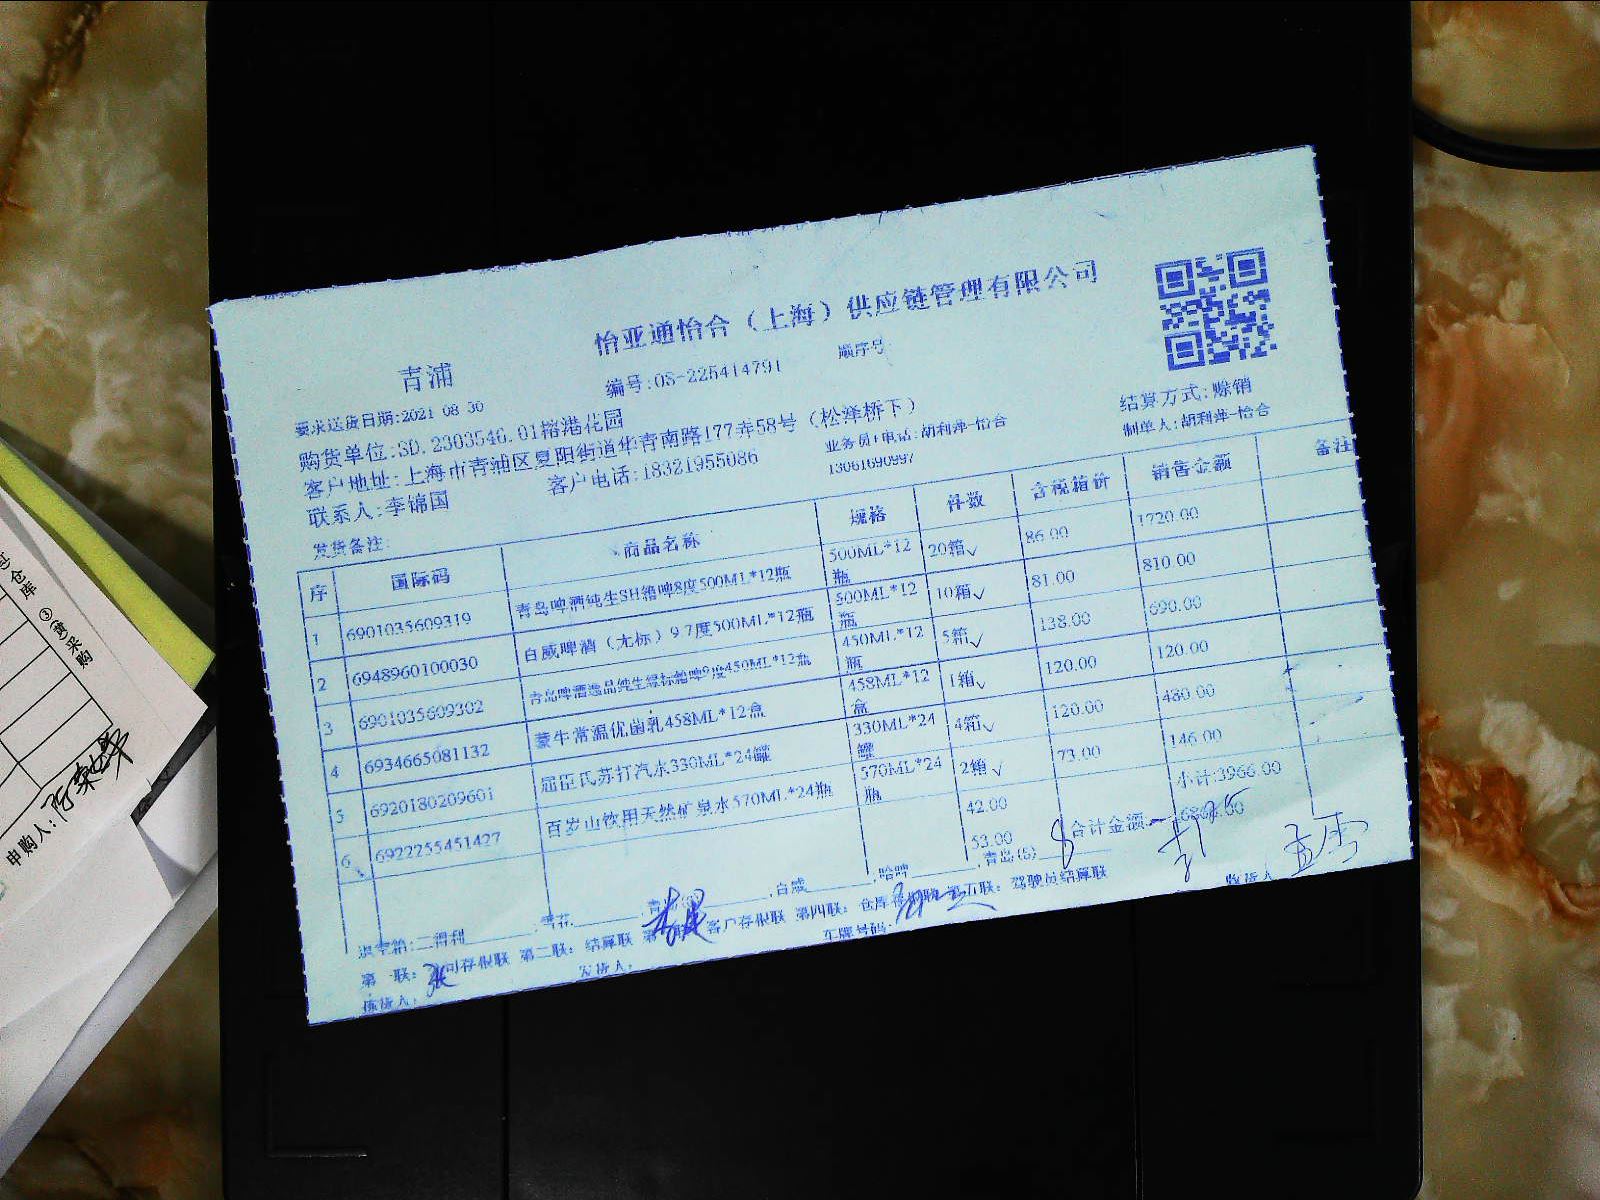 怡亚通怡合（上海）供应链管理有限公司
青浦
编号:OS-225414791
顺序号:
要求送货日期:2021-08-30
购货单位:SD.2303546.01榕港花园
结算方式:赊销
客户地址:上海市青浦区夏阳街道华青南路177弄58号（松泽桥下）
制单人:胡利萍-怡合
联系人:李锦国
客户电话:18321955086
业务员+电话:胡利萍-怡合
13061690997
发货备注:
序 国际码 商品名称 规格 件数 含税箱价 销售金额 备注
1 6901035609319 青岛啤酒纯生SH箱啤8度500ML*12瓶 500ML*12瓶 20箱 86.00 1720.00
2 6948960100030 百威啤酒（无标）9.7度500ML*12瓶 500ML*12瓶 10箱 81.00 810.00
3 6901035609302 青岛啤酒逸品纯生绿标箱啤9度450ML*12瓶 450ML*12瓶 5箱 138.00 690.00
4 6934665081132 蒙牛常温优菌乳458ML*12盒 458ML*12盒 1箱 120.00 120.00
5 6920180209601 屈臣氏苏打汽水330ML*24罐 330ML*24罐 4箱 120.00 480.00
6 6922255451427 百岁山饮用天然矿泉水570ML*24瓶 570ML*24瓶 2箱 73.00 146.00
42.00 小计:3966.00
53.00 合计金额:
退空箱:三得利 ,雪花 ,青岛 ,百威 ,哈啤 ,青岛(6) 8
第一联: 公司存根联 第二联: 结算联 客户存根联 第四联: 仓库 第五联: 驾驶员结算联
拣货人: 发货人: 车牌号码: 收货人
仓库 ③(黄)采购
申购人: